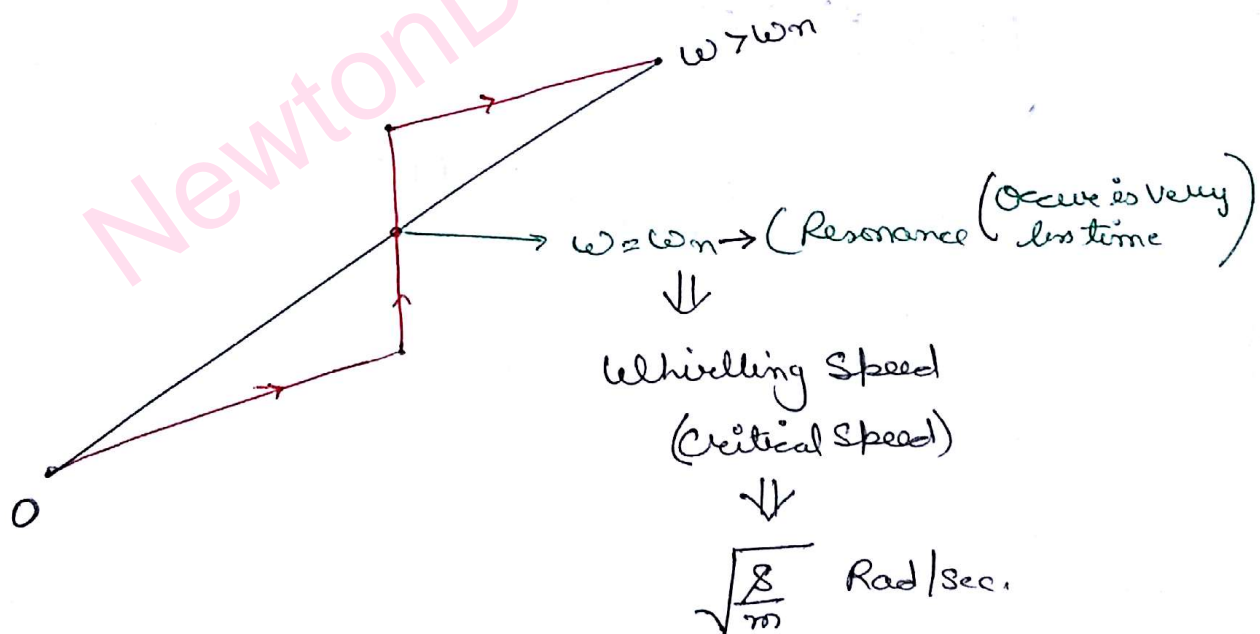 NewtonD
ω > ωn
ω = ωn → (Resonance (Occure is very
less time)
⇓
Whirlling Speed
(Critical Speed)
⇓
√(s/m) Rad/sec.
O